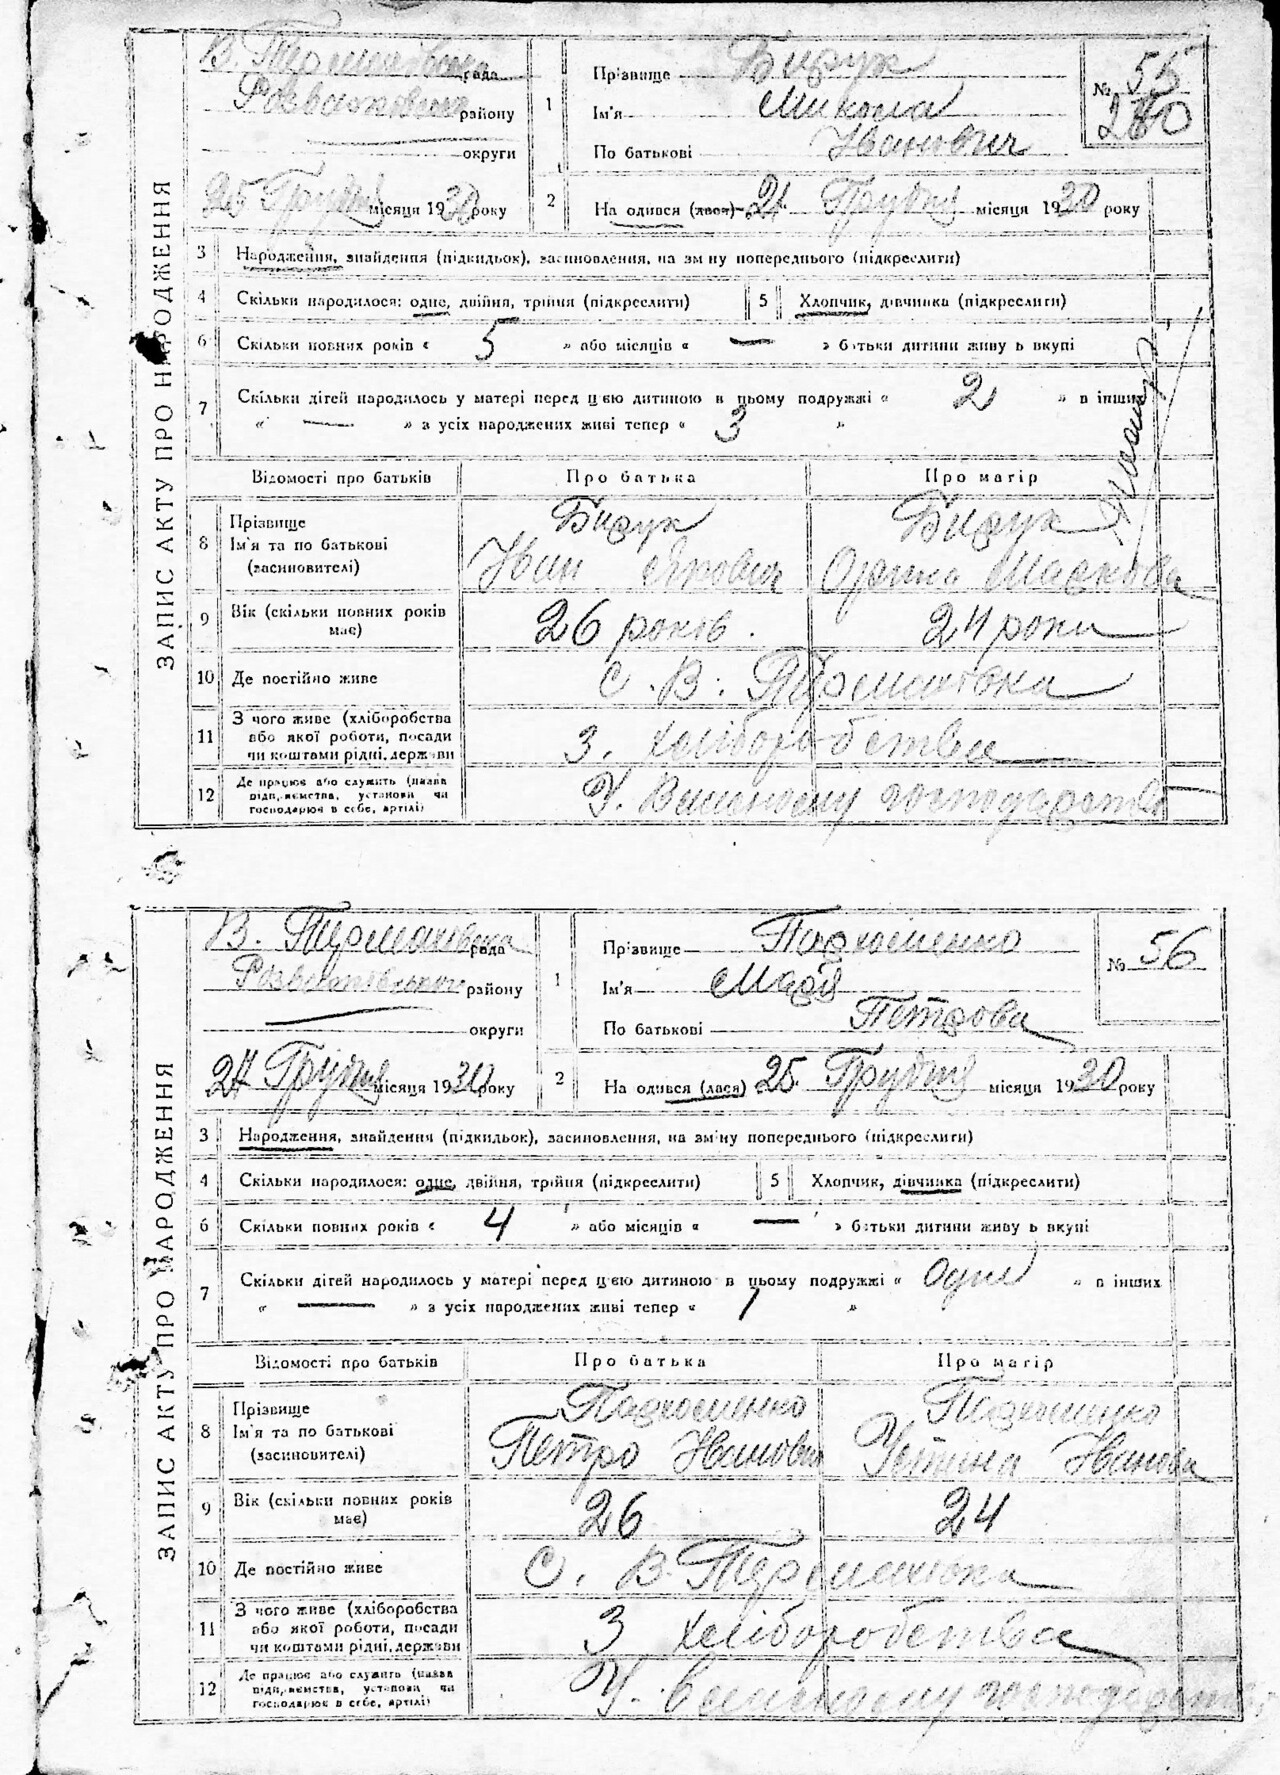 ЗАПИС АКТУ ПРО НАРОДЖЕННЯ
В. Термахівська рада
Розважівського району
округи
25 Грудня місяця 1930 року
1 Прізвище Бирук
Ім'я Микола
По батькові Іванович
№ 55
260
2 На одився (лася) 21 Грудня місяця 1930 року
3 Народження, знайдення (підкидьок), засиновлення, на зміну попереднього (підкреслити)
4 Скільки народилося: одне, двійня, трійня (підкреслити) 5 Хлопчик, дівчинка (підкреслити)
6 Скільки повних років « 5 » або місяців « — » батьки дитини живуть вкупі
7 Скільки дітей народилось у матері перед цією дитиною в цьому подружжі « 2 » в інших
« — » з усіх народжених живі тепер « 3 »
Відомості про батьків Про батька Про матір
8 Прізвище Ім'я та по батькові (засиновителі) Бирук Бирук
Іван Якович Орина Маркова
9 Вік (скільки повних років має) 26 років. 24 роки
10 Де постійно живе С. В. Термахівка
11 З чого живе (хліборобства або якої роботи, посади чи коштами рідні, держави З. хліборобства
12 Де працює або служить (назва підприємства, установи чи господарює в себе, артілі) У. власному господарстві
ЗАПИС АКТУ ПРО НАРОДЖЕННЯ
В. Термахівська рада
Розважівського району
округи
27 Грудня місяця 1930 року
1 Прізвище Пархоменко
Ім'я Марія
По батькові Петрова
№ 56
2 На одився (лася) 25 Грудня місяця 1930 року
3 Народження, знайдення (підкидьок), засиновлення, на зміну попереднього (підкреслити)
4 Скільки народилося: одне, двійня, трійня (підкреслити) 5 Хлопчик, дівчинка (підкреслити)
6 Скільки повних років « 4 » або місяців « — » батьки дитини живуть вкупі
7 Скільки дітей народилось у матері перед цією дитиною в цьому подружжі « Одне » в інших
« — » з усіх народжених живі тепер « 1 »
Відомості про батьків Про батька Про матір
8 Прізвище Ім'я та по батькові (засиновителі) Пархоменко Пархоменко
Петро Іванович Устина Іванова
9 Вік (скільки повних років має) 26 24
10 Де постійно живе С. В. Термахівка
11 З чого живе (хліборобства або якої роботи, посади чи коштами рідні, держави З хліборобства
12 Де працює або служить (назва підприємства, установи чи господарює в себе, артілі) У. власному господарстві